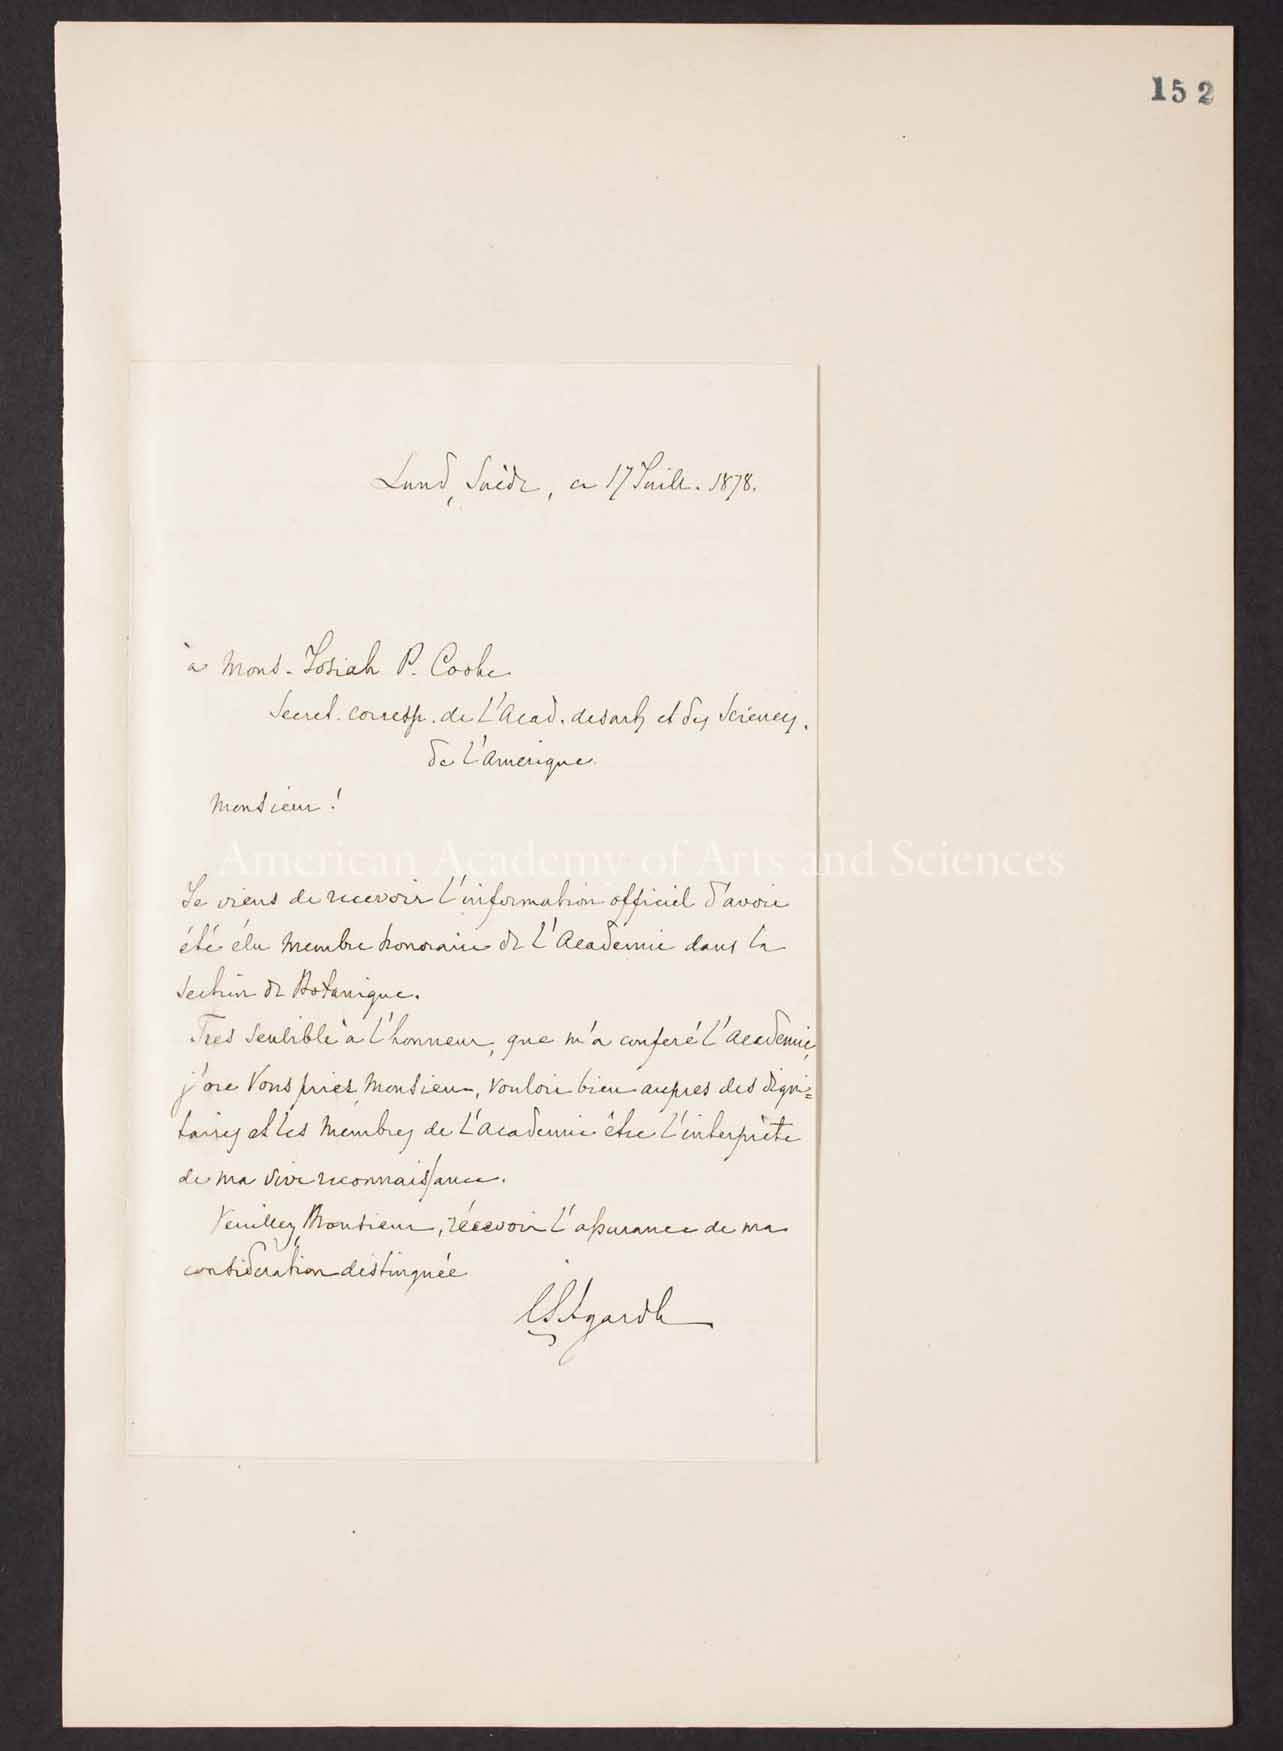 152
Lund, Suède, ce 17 Juill. 1878.
à Mons. Josiah P. Cooke
Secret. corresp. de l'Acad. des arts et des Sciences.
de l'Amerique.
Monsieur!
American Academy of Arts and Sciences
Je viens de recevoir l'information officiel d'avoir
été élu Membre honoraire de l'Academie dans la
Section de Botanique.
Tres sensible à l'honneur, que m'a conferé l'Academie,
j'ose Vous prier, Monsieur, vouloir bien aupres des digni=
taires et les Membres de l'Academie être l'interprète
de ma vive reconnaissance.
Veuillez, Monsieur, récevoir l'assurance de ma
consideration distinguée
J. G. Agardh